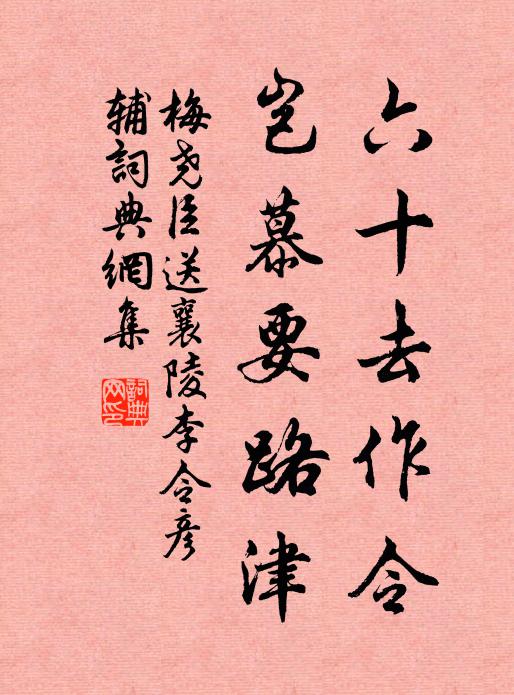 六十去作令
岂慕要路津
梅尧臣送襄陵李令彦
辅詞典網集
詞典
网印